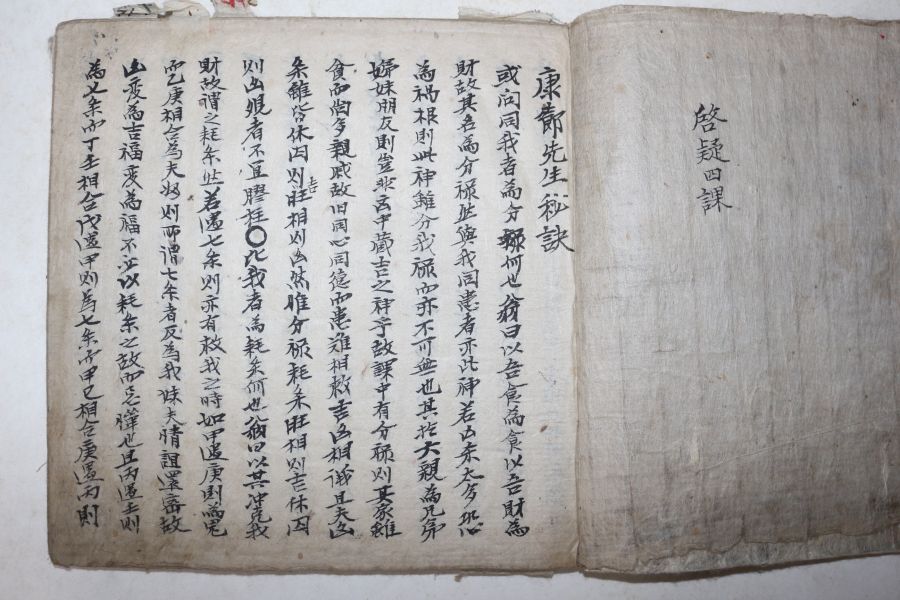 啓疑四課
康節先生秘訣
或问同我者為分祿何也翁曰以吾食為食以吾財為
財故其名為分祿然與我同患者亦此神若凶杀太多
為禍根則此神雖分我祿而亦不可無也其於六親為兄弟
姊妹朋友則豈非凶中藏吉之神乎故課中有分祿則其家雖
貧而尚多親戚故旧同心同德而患難相救吉凶相议且夫凶
杀雖皆休囚則吉旺相則凶然惟分祿耗杀旺相則吉休囚
則凶覌者不且膠柱〇比我者為耗杀何也翁曰以其冲克我
財故謂之耗杀然若遇七杀則亦有救我之時如甲遇庚則為鬼
而乙庚相合為夫妇則所謂七杀者反為我妹夫情誼還密故
凶変為吉福変為福不必以耗杀之故而 憚也且丙遇壬則
為七杀而丁壬相合戊遇甲則為七杀而甲己相合庚遇丙則